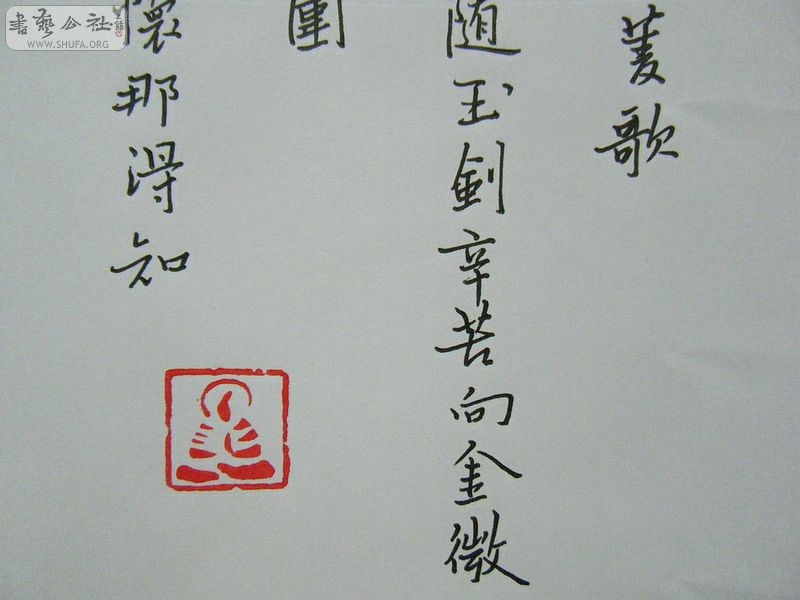 菱歌
随玉劍辛苦向金微
圍
懷那得知
書藝公社
WWW.SHUFA.ORG